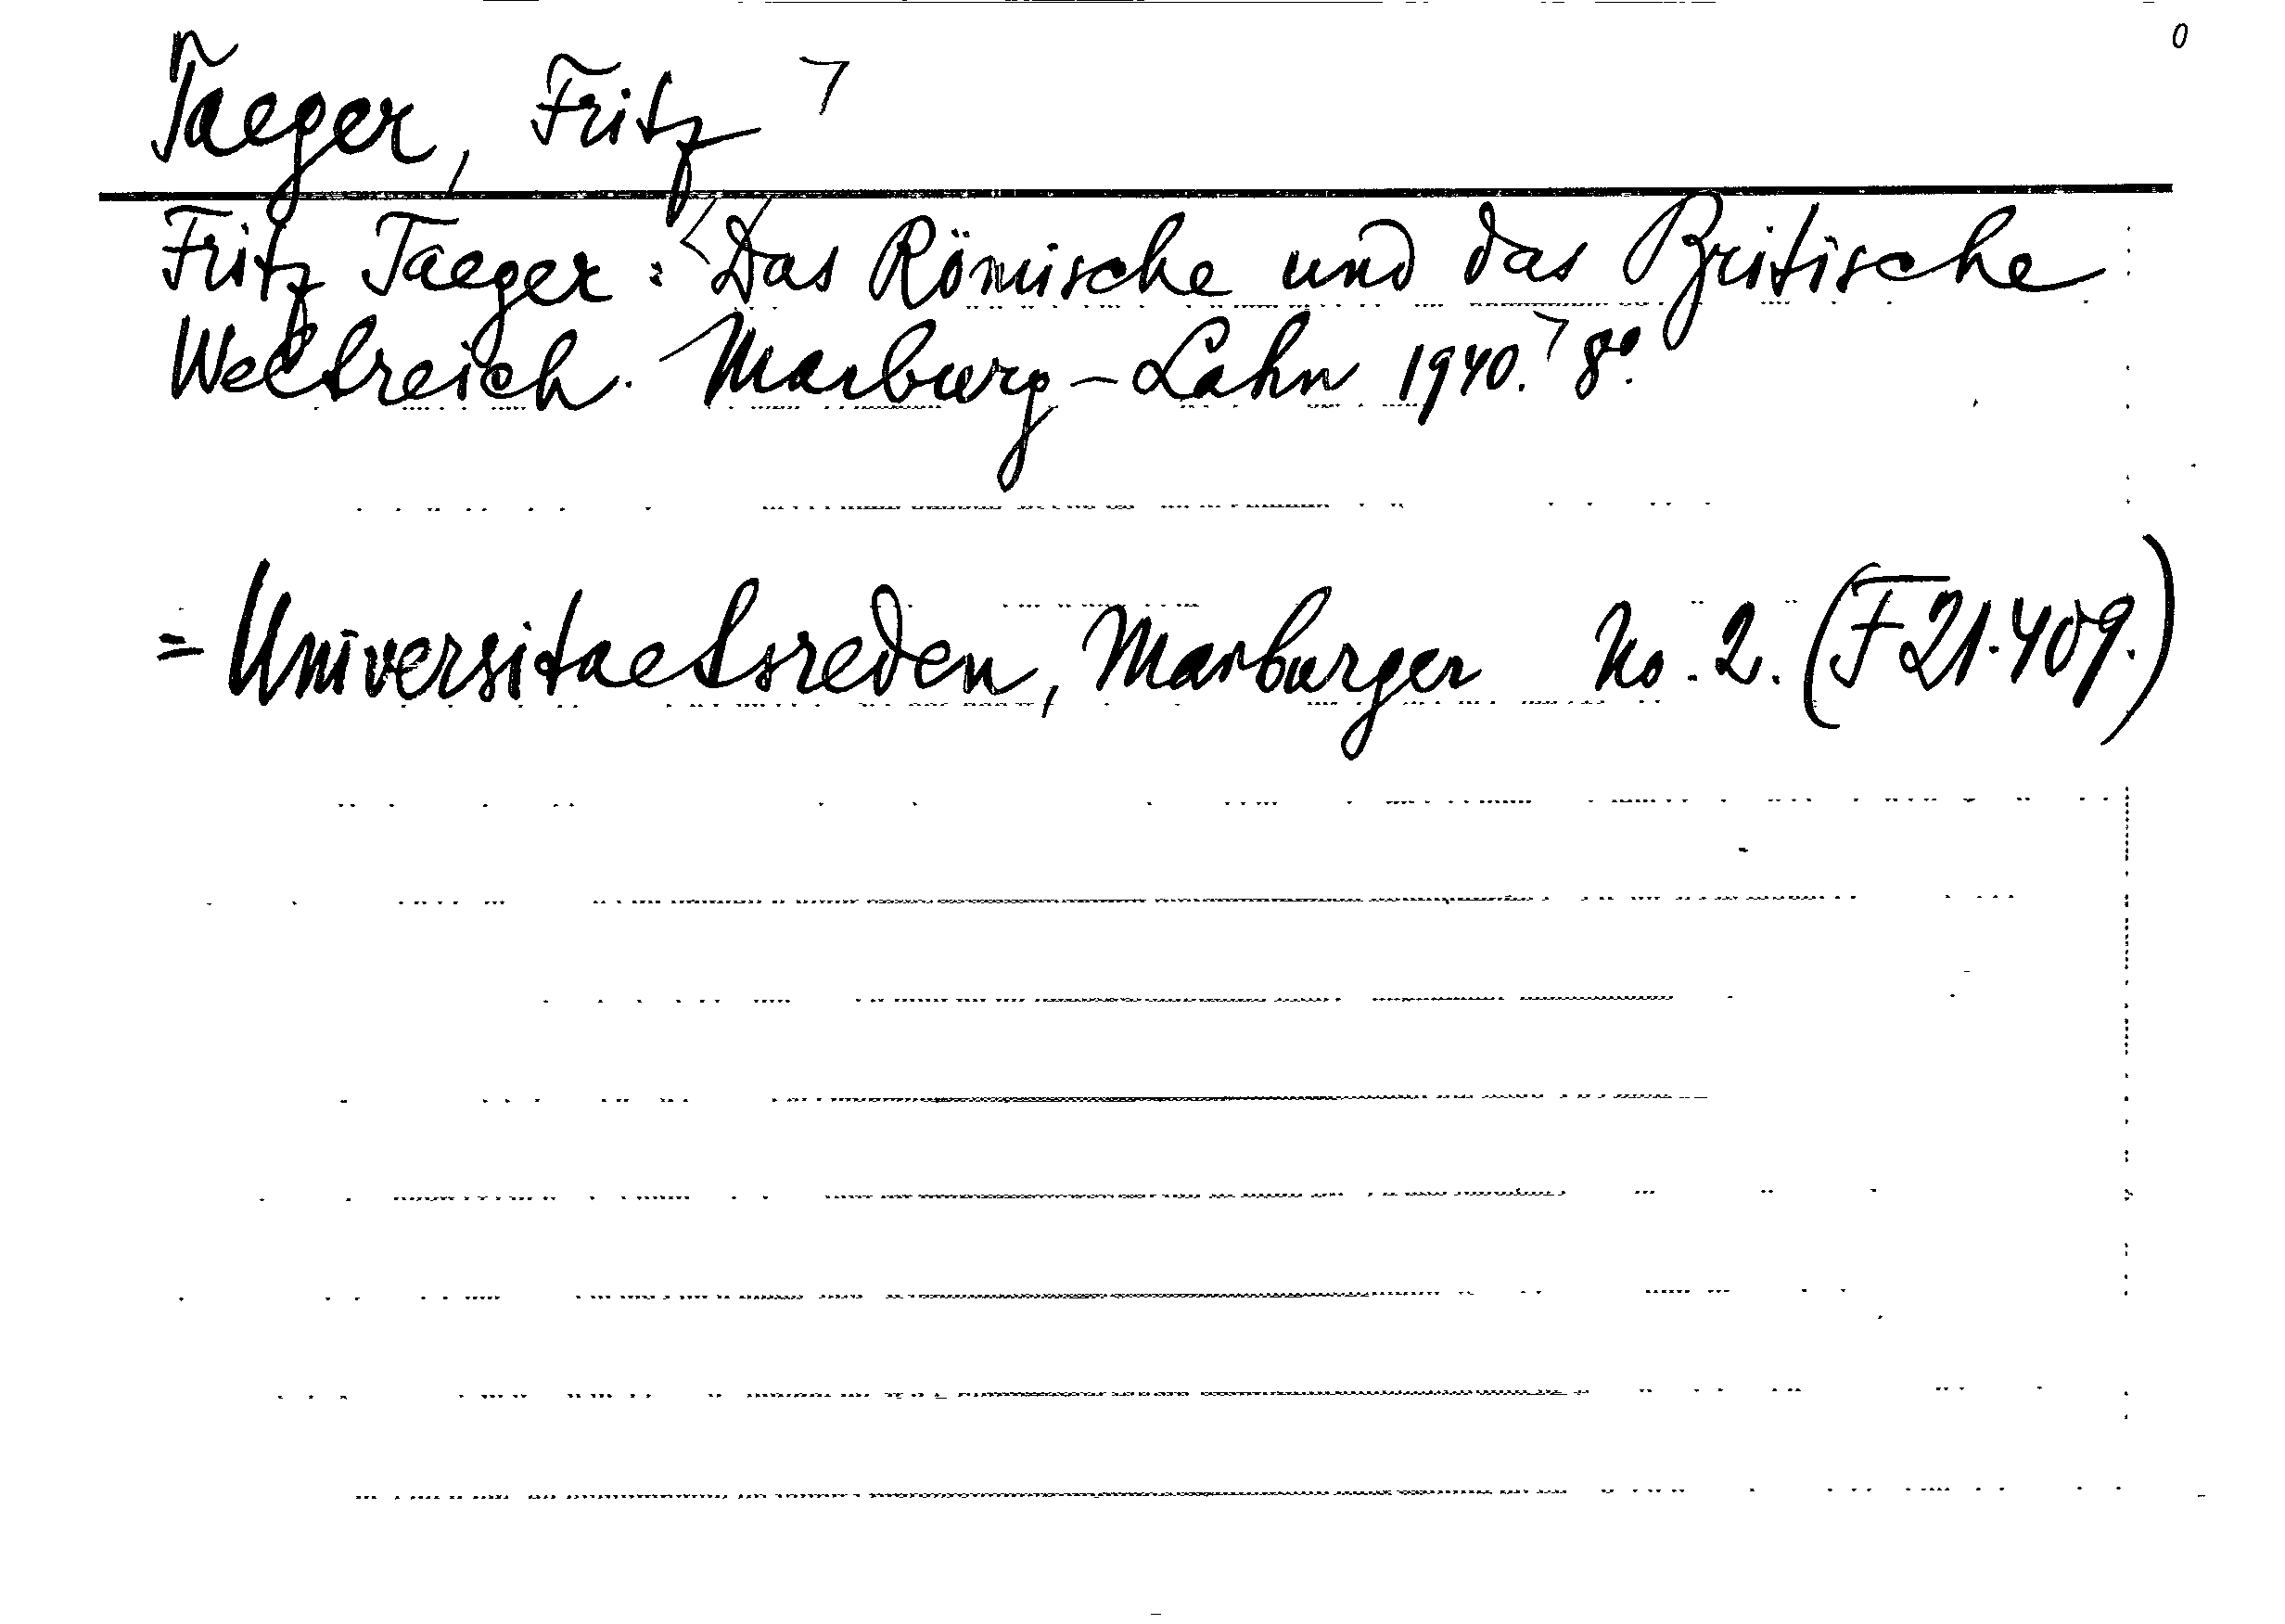 Taeger, Fritz
Fritz Taeger: Das Römische und das Britische
Weltreich. Marburg-Lahn 1940. 8°.
= Universitaetsreden, Marburger No. 2. (F 21.409.)